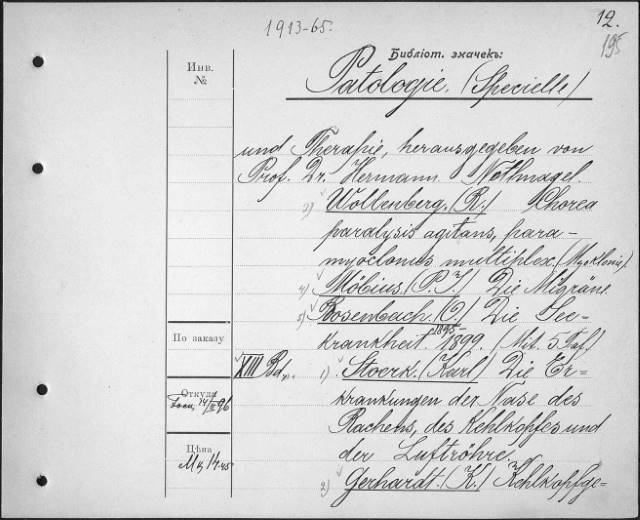 1913-65.
12.
195
Библіот. значекъ:
Инв.
№
Patologie. (Specielle)
und Therapie, herausgegeben von
Prof. Dr. Hermann Nothnagel.
3) Wollenberg. (R.) Chorea
paralysis agitans, para-
myoclonus multiplex. (Myoklonie.)
4) Möbius. (P. J.) Die Migräne
5) Rosenbach. (O.) Die See-
krankheit. 1895-1899. (Mit. 5. Taf.)
По заказу
XIII Bd. 1) Stoerk. (Karl) Die Er-
Откуда
14/II 96
krankungen der Nase des
Rachens, des Kehlkopfes und
Цѣна
der Luftröhre.
2) Gerhardt. (K.) Kehlkopfge-